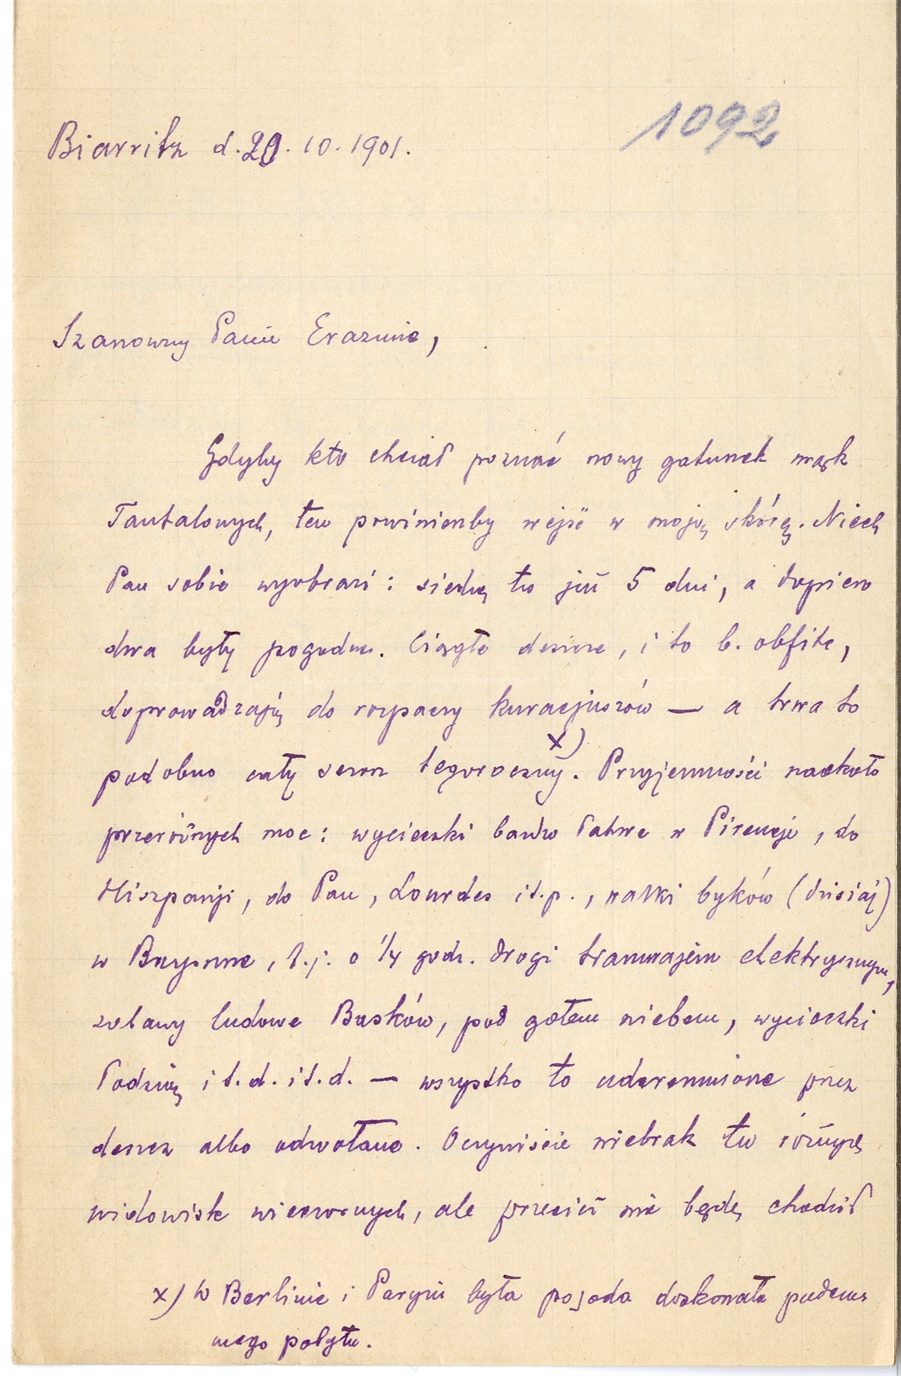 1092
Biarritz d. 20. 10. 1901.
Szanowny Panie Erazmie,
Gdyby kto chciał poznać nowy gatunek mąk
Tantalowych, ten powinienby wejść w moją skórę. Niech
Pan sobie wyobrazi: siedzę tu już 5 dni, a dopiero
dwa były pogodne. Ciągłe deszcze, i to b. obfite,
doprowadzają do rozpaczy kuracjuszów — a trwa to
podobno cały sezon tegoroczny. x) Przyjemności naokoło
przeróżnych moc: wycieczki bardzo łatwe w Pireneje, do
Hiszpanji, do Pau, Lourdes i t.p., walki byków (dzisiaj)
w Bayonne, t.j. o 1/4 godz. drogi tramwajem elektrycznym,
zabawy ludowe Basków, pod gołem niebem, wycieczki
łodzią i t.d. i t.d. — wszystko to udaremnione przez
deszcz albo odwołane. Oczywiście niebrak tu różnych
widowisk wieczornych, ale przecież nie będę chodził
x) W Berlinie i Paryżu była pogoda doskonała podczas
mego pobytu.